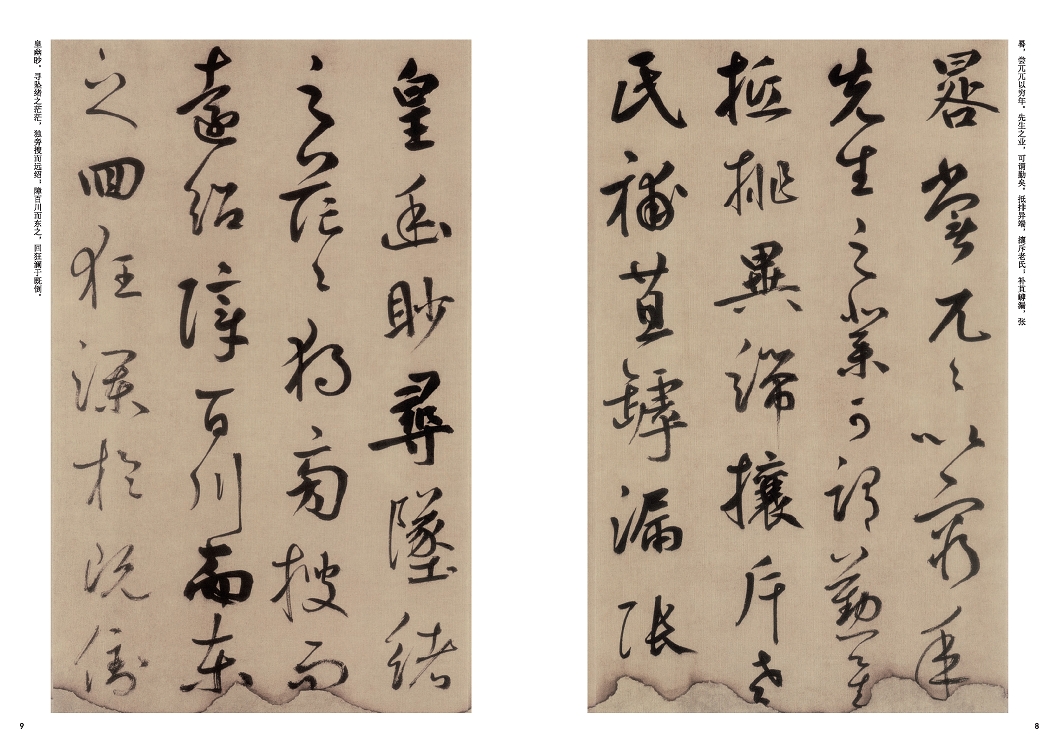 晷，尝兀兀以穷年。先生之业，可谓勤矣。抵排异端，攘斥老氏；补苴罅漏，张
晷嘗兀々以窮年
先生之業可謂勤矣
抵排異端攘斥老
氏補苴罅漏張
8
皇幽眇尋墜緒
之茫々獨旁搜而
遠紹障百川而東
之回狂瀾於既倒
皇幽眇。寻坠绪之茫茫，独旁搜而远绍；障百川而东之，回狂澜于既倒。
9